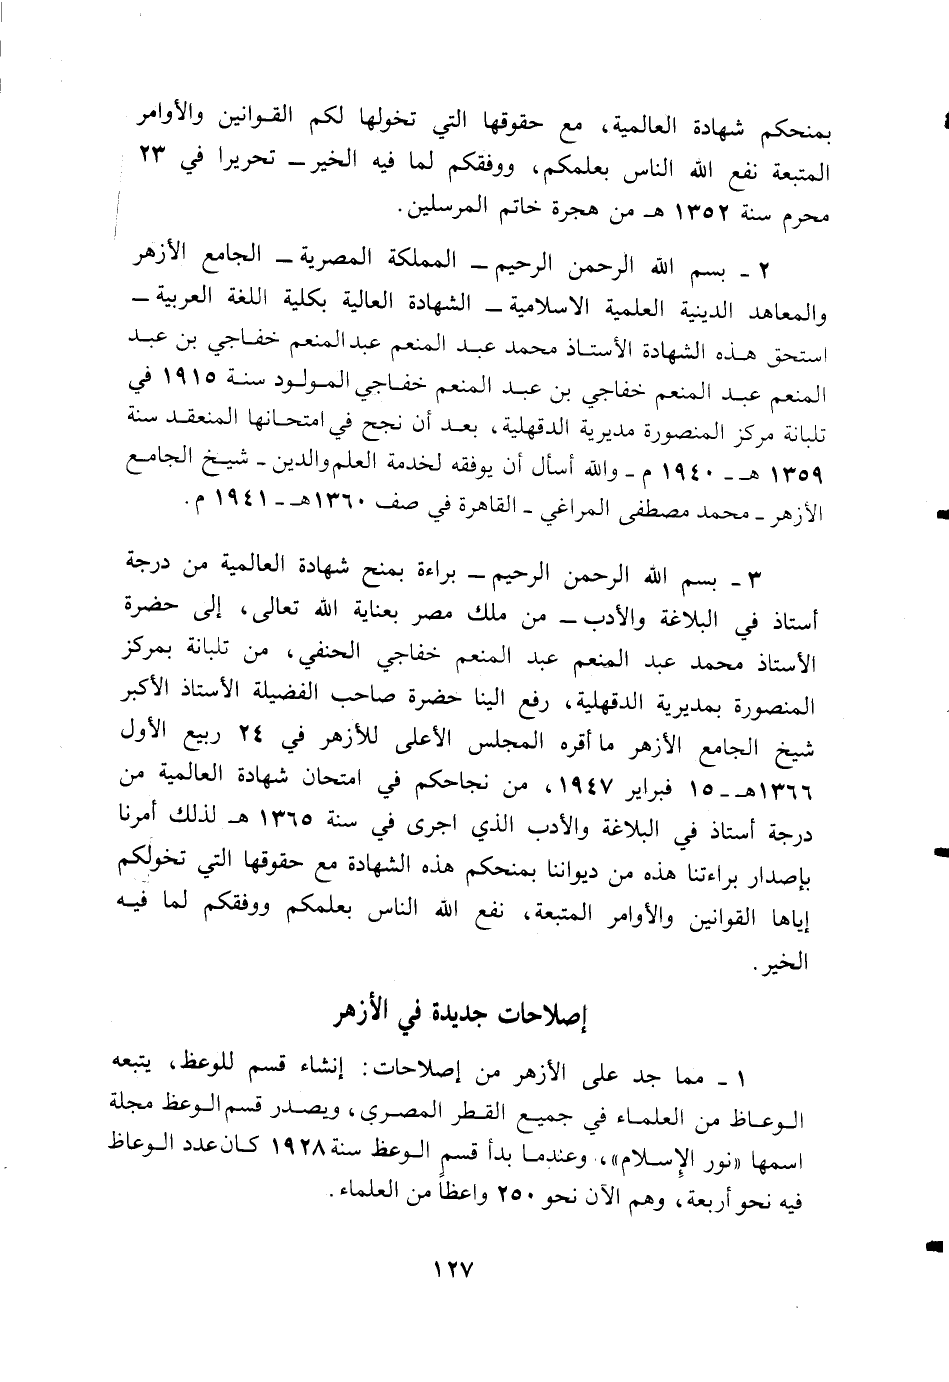 بمنحكم شهادة العالمية، مع حقوقها التي تخولها لكم القوانين والأوامر
المتبعة نفع الله الناس بعلمكم، ووفقكم لما فيه الخير ـ تحريرا في ٢٣
محرم سنة ١٣٥٢ هـ من هجرة خاتم المرسلين.
٢ ـ بسم الله الرحمن الرحيم ـ المملكة المصرية ـ الجامع الأزهر
والمعاهد الدينية العلمية الاسلامية ـ الشهادة العالية بكلية اللغة العربية ـ
استحق هذه الشهادة الأستاذ محمد عبد المنعم عبد المنعم خفاجي بن عبد
المنعم عبد المنعم خفاجي بن عبد المنعم خفاجي المولود سنة ١٩١٥ في
تلبانة مركز المنصورة مديرية الدقهلية، بعد أن نجح في امتحانها المنعقد سنة
١٣٥٩ هـ ـ ١٩٤٠ م ـ والله أسأل أن يوفقه لخدمة العلم والدين ـ شيخ الجامع
الأزهر ـ محمد مصطفى المراغي ـ القاهرة في صف ١٣٦٠هـ ـ ١٩٤١ م.
٣ ـ بسم الله الرحمن الرحيم ـ براءة بمنح شهادة العالمية من درجة
أستاذ في البلاغة والأدب ـ من ملك مصر بعناية الله تعالى، إلى حضرة
الأستاذ محمد عبد المنعم عبد المنعم خفاجي الحنفي، من تلبانة بمركز
المنصورة بمديرية الدقهلية، رفع الينا حضرة صاحب الفضيلة الأستاذ الأكبر
شيخ الجامع الأزهر ما أقره المجلس الأعلى للأزهر في ٢٤ ربيع الأول
١٣٦٦هـ ـ ١٥ فبراير ١٩٤٧، من نجاحكم في امتحان شهادة العالمية من
درجة أستاذ في البلاغة والأدب الذي اجرى في سنة ١٣٦٥ هـ لذلك أمرنا
بإصدار براءتنا هذه من ديواننا بمنحكم هذه الشهادة مع حقوقها التي تخولكم
إياها القوانين والأوامر المتبعة، نفع الله الناس بعلمكم ووفقكم لما فيه
الخير.
إصلاحات جديدة في الأزهر
١ ـ مما جد على الأزهر من إصلاحات: إنشاء قسم للوعظ، يتبعه
الوعاظ من العلماء في جميع القطر المصري، ويصدر قسم الوعظ مجلة
اسمها «نور الإسلام»، وعندما بدأ قسم الوعظ سنة ١٩٢٨ كان عدد الوعاظ
فيه نحو أربعة، وهم الآن نحو ٢٥٠ واعظاً من العلماء.
١٢٧